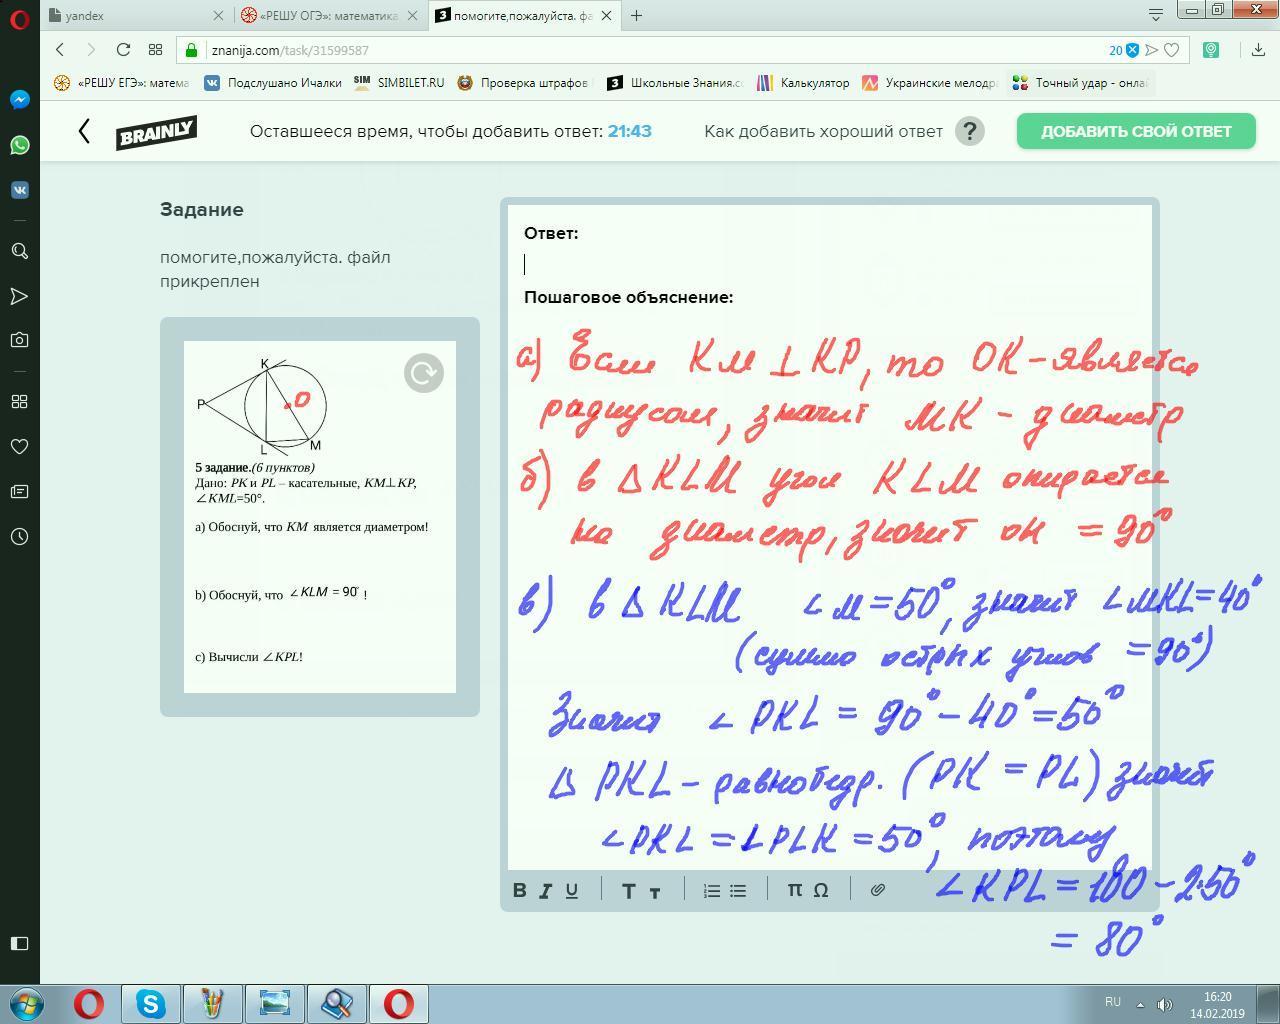 yandex
«РЕШУ ОГЭ»: математика
помогите,пожалуйста. фа
znanija.com/task/31599587
20
«РЕШУ ЕГЭ»: матема
Подслушано Ичалки
SIM
SIMBILET.RU
Проверка штрафов
Школьные Знания.cо
Калькулятор
Украинские мелодра
Точный удар - онлай
BRAINLY
Оставшееся время, чтобы добавить ответ: 21:43
Как добавить хороший ответ ?
ДОБАВИТЬ СВОЙ ОТВЕТ
Задание
помогите,пожалуйста. файл
прикреплен
K
P
O
L
M
5 задание.(6 пунктов)
Дано: PK и PL – касательные, KM⊥KP,
∠KML=50°.
a) Обоснуй, что KM является диаметром!
b) Обоснуй, что ∠KLM = 90° !
c) Вычисли ∠KPL!
Ответ:
Пошаговое объяснение:
а) Если КМ ⊥ КР, то ОК – является
радиусом, значит МК – диаметр
б) в Δ KLM угол KLM опирается
на диаметр, значит он = 90°
в) в Δ KLM ∠M = 50°, значит ∠MKL = 40°
(сумма острых углов = 90°)
Значит ∠ PKL = 90° – 40° = 50°
Δ PKL – равнобедр. (PK = PL) значит
∠PKL = ∠PLK = 50°, поэтому
∠KPL = 180 – 2·50°
= 80°
B I U T т π Ω
RU
16:20
14.02.2019